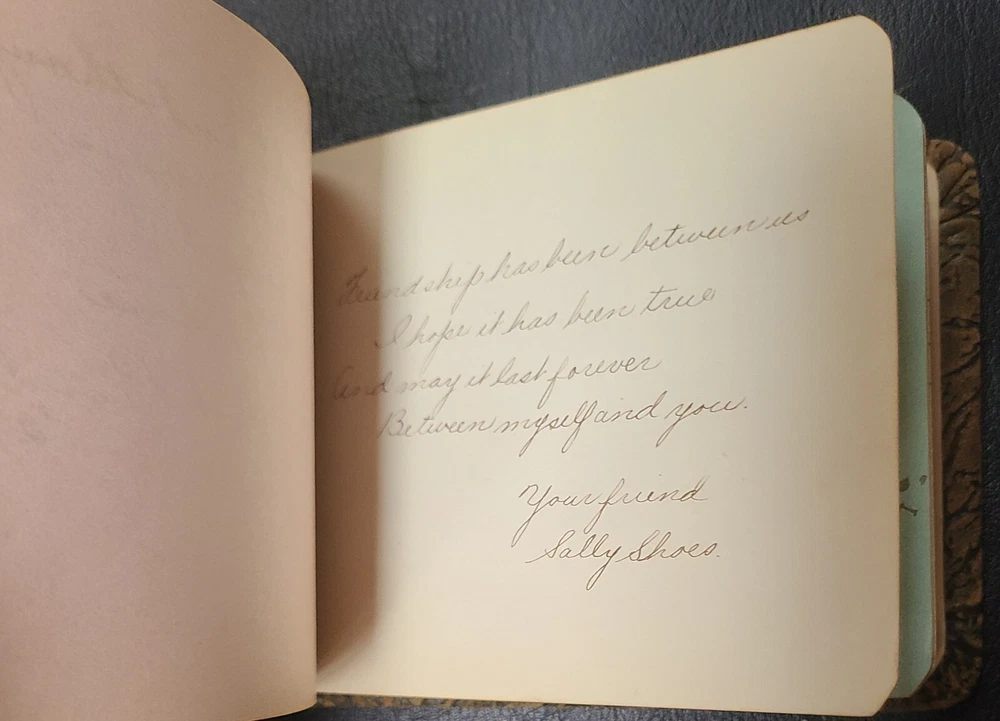 Friendship has been between us
I hope it has been true
And may it last forever
Between myself and you.
Your friend
Sally Shoes.